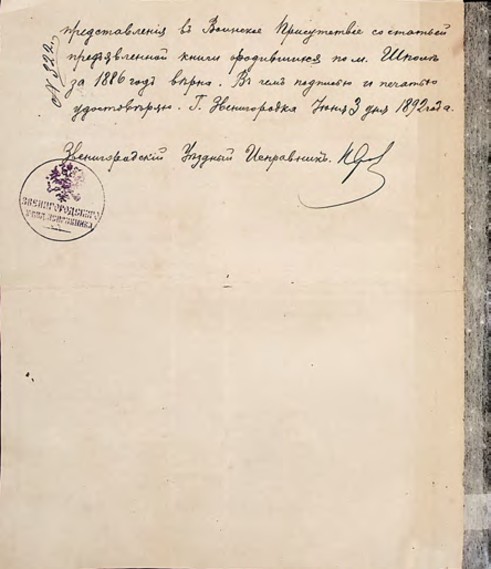 представленія въ Воинское Присутствіе со статьей
предъявленной книги о родившихся по м. Шпола
за 1886 годъ вѣрна. Въ чемъ подписью и печатью
удостовѣряю. Г. Звенигородка Іюня 3 дня 1892 года.
№ 822.
Звенигородскій Уѣздный Исправникъ
ЗВЕНИГОРОДСКАГО
УѢЗД. ИСПРАВНИКА